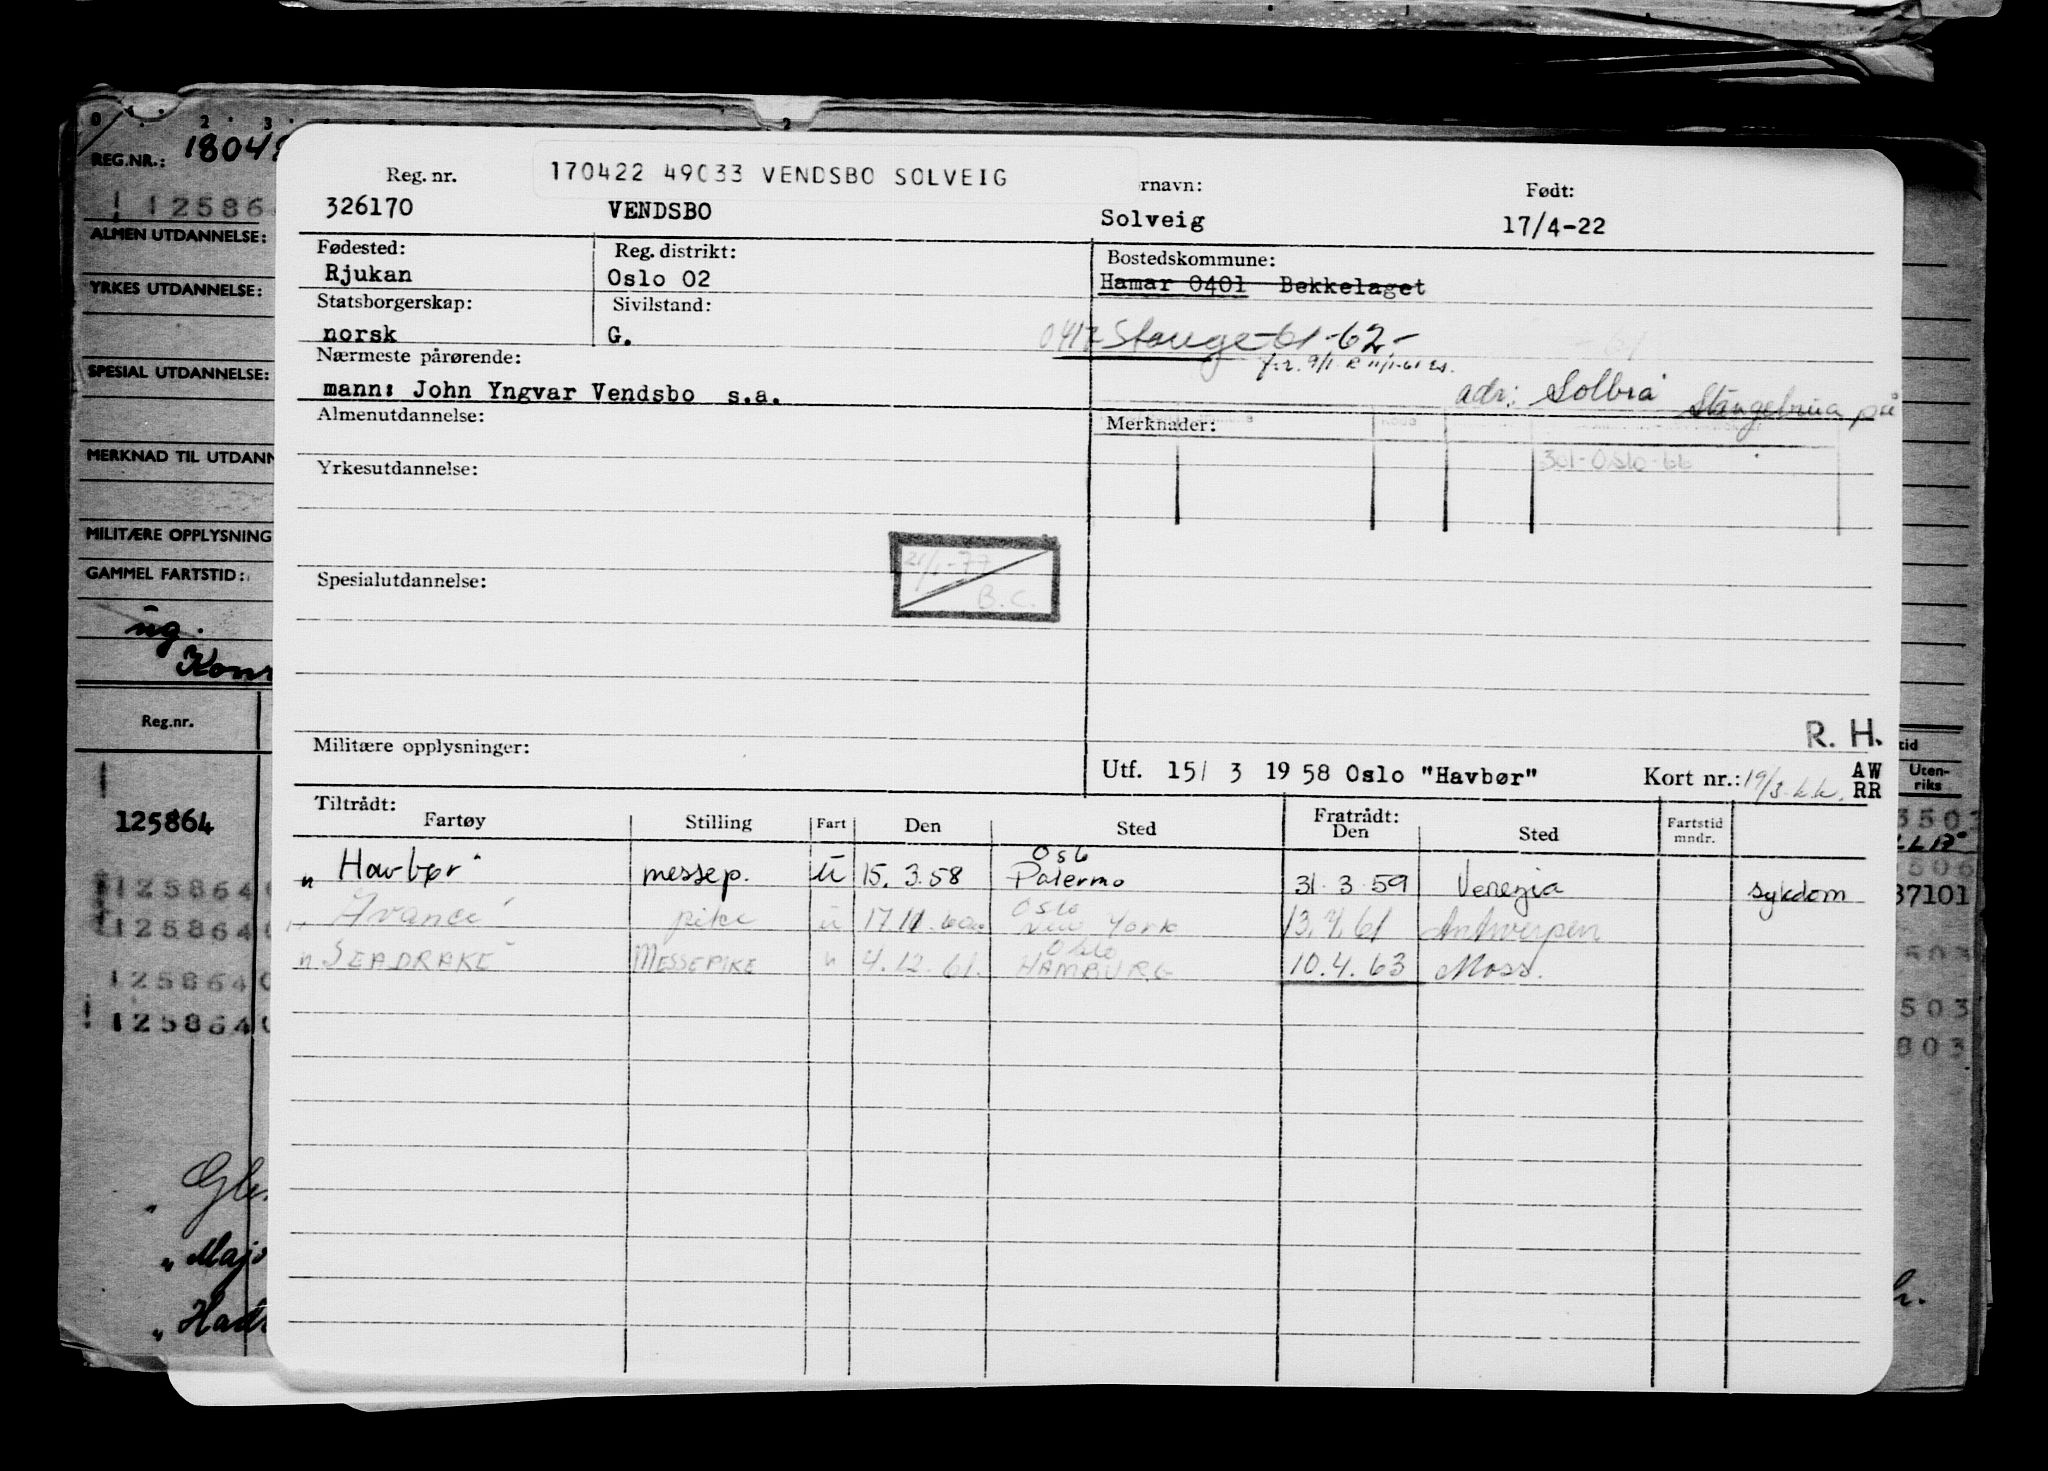 170422 49033 VENDSBO SOLVEIG
Reg. nr. rnavn: Født:
326170 VENDSBO Solveig 17/4-22
Fødested: Reg. distrikt: Bostedskommune:
Rjukan Oslo 02 Hamar 0401 Bekkelaget
Statsborgerskap: Sivilstand:
norsk G. 0417 Stange-61-62-
Nærmeste pårørende:
mann: John Yngvar Vendsbo s.a. adr: Solbrå Stangebrua på
Almenutdannelse: Merknader:
301-Oslo-66
Yrkesutdannelse:
21/1-77
B.C.
Spesialutdannelse:
R. H.
Militære opplysninger:
Utf. 15/ 3 1958 Oslo "Havbør" Kort nr.: 19/3-66. AW
RR
Tiltrådt: Fratrådt:
Fartøy Stilling Fart Den Sted Den Sted Fartstid mndr.
Oslo
" Havbør" messep. U 15. 3.58 Palermo 31.3.59 Venezia sykdom
Oslo
Avance" pike u 17.11.60 New York 13.7.61 Antwerpen
Oslo
" SEADRAKE" MESSEPIKE u 4.12.61. HAMBURG 10.4.63 Moss.
0 2 3 2
REG.NR.: 18048
125864
ALMEN UTDANNELSE:
YRKES UTDANNELSE:
SPESIAL UTDANNELSE:
MERKNAD TIL UTDANN
MILITÆRE OPPLYSNING
GAMMEL FARTSTID:
ug.
Kons
Reg.nr. tid
Uten-
riks
125864 5503
1258640 506
1258640 37101
1258640 503
1258640 503
803
Gle
"Majo
"Had